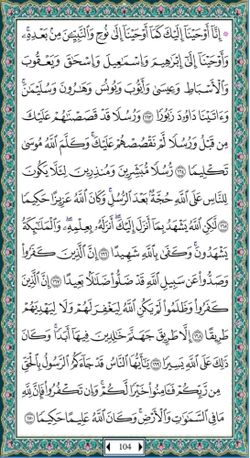 ۞ إِنَّآ أَوْحَيْنَآ إِلَيْكَ كَمَآ أَوْحَيْنَآ إِلَىٰ نُوحٍ وَٱلنَّبِيِّـۧنَ مِنۢ بَعْدِهِۦۚ
وَأَوْحَيْنَآ إِلَىٰٓ إِبْرَٰهِيمَ وَإِسْمَٰعِيلَ وَإِسْحَٰقَ وَيَعْقُوبَ
وَٱلْأَسْبَاطِ وَعِيسَىٰ وَأَيُّوبَ وَيُونُسَ وَهَٰرُونَ وَسُلَيْمَٰنَۚ
وَءَاتَيْنَا دَاوُۥدَ زَبُورًا ١٦٣ وَرُسُلًا قَدْ قَصَصْنَٰهُمْ عَلَيْكَ
مِن قَبْلُ وَرُسُلًا لَّمْ نَقْصُصْهُمْ عَلَيْكَۚ وَكَلَّمَ ٱللَّهُ مُوسَىٰ
تَكْلِيمًا ١٦٤ رُّسُلًا مُّبَشِّرِينَ وَمُنذِرِينَ لِئَلَّا يَكُونَ
لِلنَّاسِ عَلَى ٱللَّهِ حُجَّةٌۢ بَعْدَ ٱلرُّسُلِۚ وَكَانَ ٱللَّهُ عَزِيزًا حَكِيمًا
١٦٥ لَّٰكِنِ ٱللَّهُ يَشْهَدُ بِمَآ أَنزَلَ إِلَيْكَۖ أَنزَلَهُۥ بِعِلْمِهِۦۖ وَٱلْمَلَٰٓئِكَةُ
يَشْهَدُونَۚ وَكَفَىٰ بِٱللَّهِ شَهِيدًا ١٦٦ إِنَّ ٱلَّذِينَ كَفَرُوا۟
وَصَدُّوا۟ عَن سَبِيلِ ٱللَّهِ قَدْ ضَلُّوا۟ ضَلَٰلًۢا بَعِيدًا ١٦٧ إِنَّ ٱلَّذِينَ
كَفَرُوا۟ وَظَلَمُوا۟ لَمْ يَكُنِ ٱللَّهُ لِيَغْفِرَ لَهُمْ وَلَا لِيَهْدِيَهُمْ
طَرِيقًا ١٦٨ إِلَّا طَرِيقَ جَهَنَّمَ خَٰلِدِينَ فِيهَآ أَبَدًاۚ وَكَانَ
ذَٰلِكَ عَلَى ٱللَّهِ يَسِيرًا ١٦٩ يَٰٓأَيُّهَا ٱلنَّاسُ قَدْ جَآءَكُمُ ٱلرَّسُولُ بِٱلْحَقِّ
مِن رَّبِّكُمْ فَـَٔامِنُوا۟ خَيْرًا لَّكُمْۚ وَإِن تَكْفُرُوا۟ فَإِنَّ لِلَّهِ
مَا فِى ٱلسَّمَٰوَٰتِ وَٱلْأَرْضِۚ وَكَانَ ٱللَّهُ عَلِيمًا حَكِيمًا ١٧٠
104